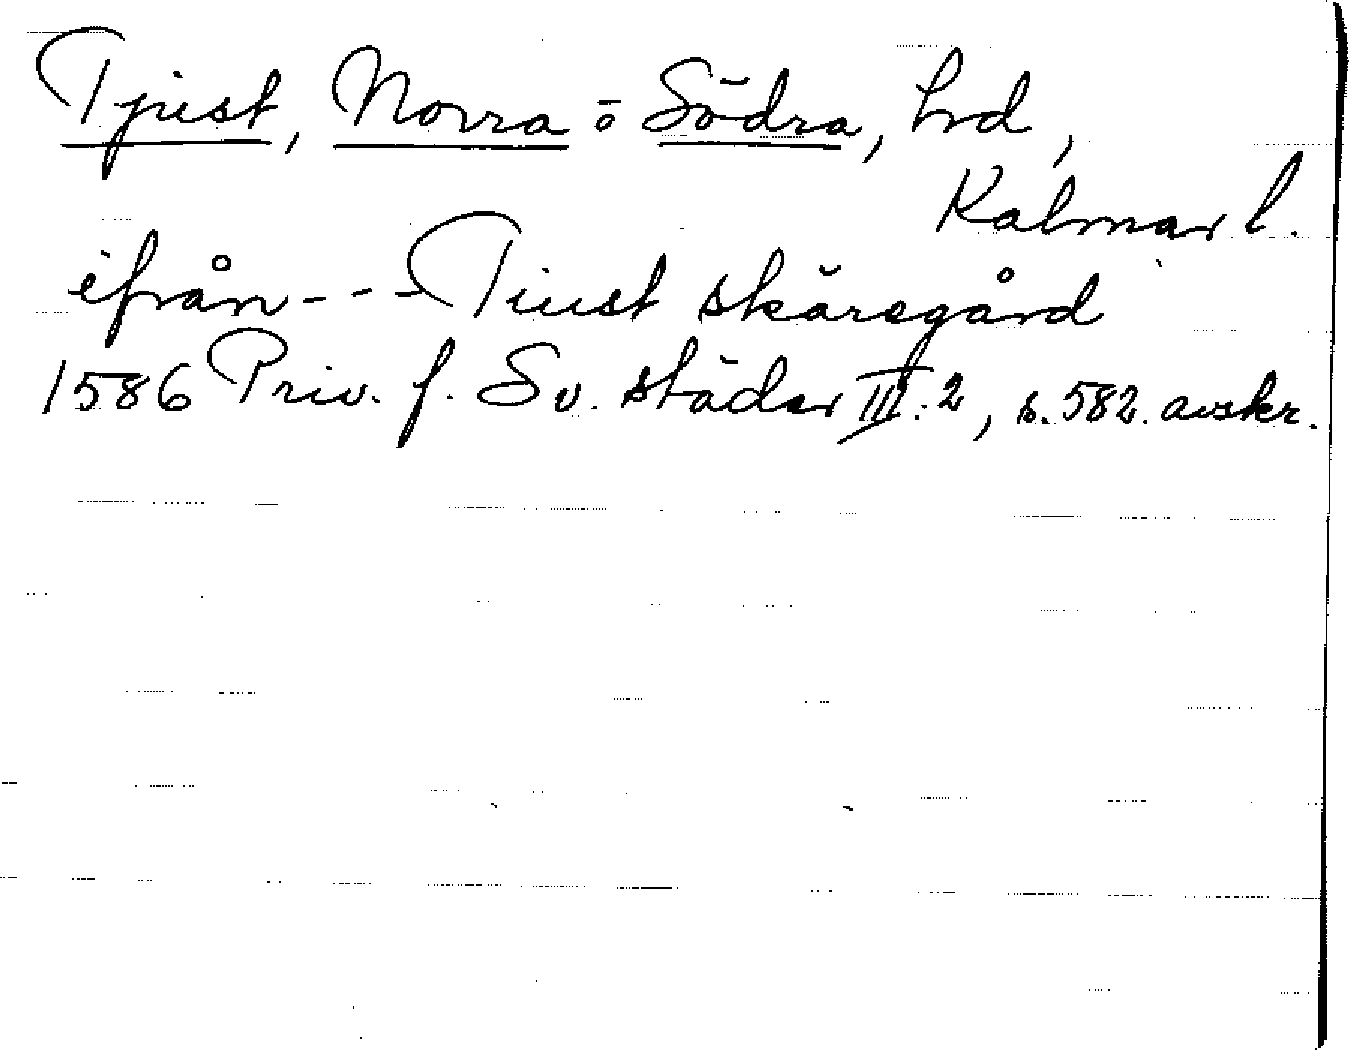 Tjust, Norra o Södra, hrd,
Kalmar l.
ifrån --- Tiust skäregård
1586 Priv. f. Sv. städer III:2, s. 582. avskr.